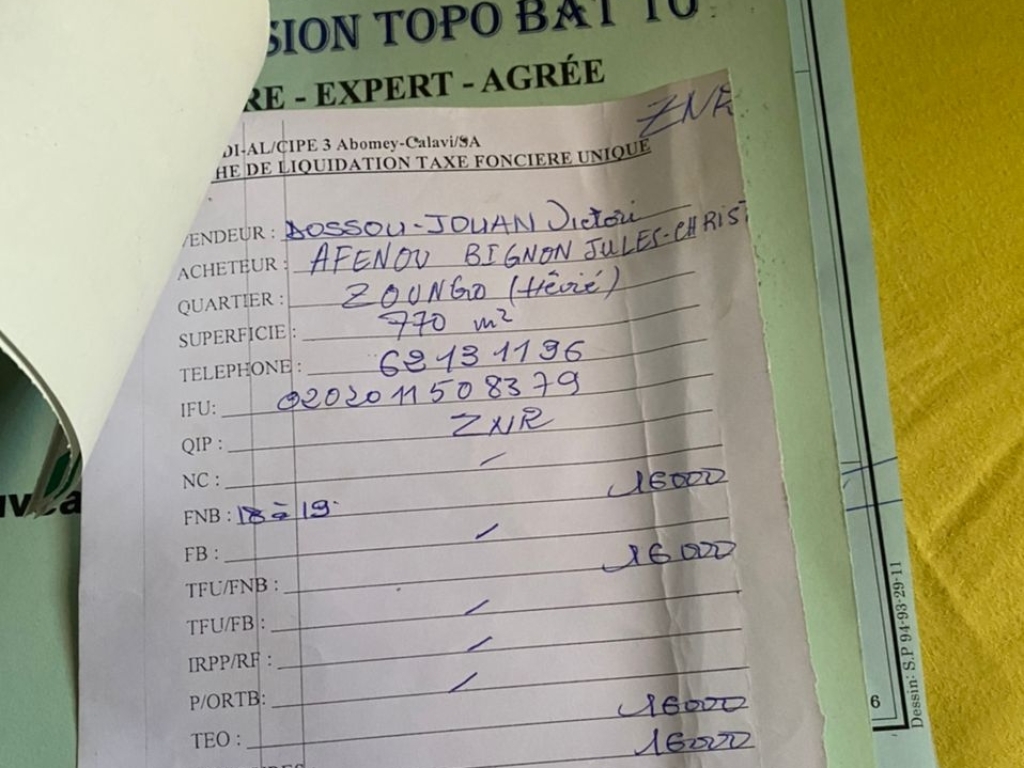 SION TOPO BAT TO
RE - EXPERT - AGRÉE
ZNR
DI-AL/CIPE 3 Abomey-Calavi/SA
HE DE LIQUIDATION TAXE FONCIERE UNIQUE
VENDEUR : DOSSOU-JOUAN Victori
ACHETEUR : AFENOU BIGNON JULES-CHRIST
QUARTIER : ZOUNGO (Hêvié)
SUPERFICIE : 770 m²
TELEPHONE : 62131196
IFU: 0202011508379
QIP : ZNR
NC : /
FNB : 18 à 19 16000
FB : /
TFU/FNB : 16000
TFU/FB : /
IRPP/RF : /
P/ORTB: /
TEO : 16000
16000
6
Dessin: S.P 94-93-29-11